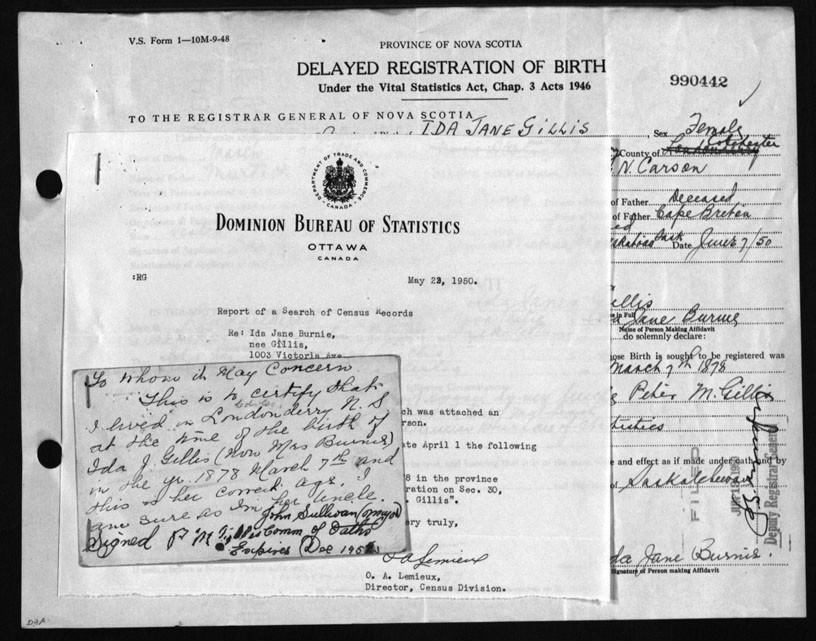 V.S. Form 1—10M-9-48
PROVINCE OF NOVA SCOTIA
DELAYED REGISTRATION OF BIRTH
Under the Vital Statistics Act, Chap. 3 Acts 1946
990442
TO THE REGISTRAR GENERAL OF NOVA SCOTIA
IDA JANE GILLIS
Sex Female
County of Colchester
N. Carson
of Father Deceased
of Father Cape Breton
Sask Date June 7/50
DEPARTMENT OF TRADE AND COMMERCE
CANADA
DOMINION BUREAU OF STATISTICS
OTTAWA
CANADA
:RG
May 23, 1950.
Report of a Search of Census Records
Re: Ida Jane Burnie,
nee Gillis,
1003 Victoria Ave
Gillis
Jane Burnie
Name of Person Making Affidavit
do solemnly declare:
ose Birth is sought to be registered was
March 7th 1878
Peter M. Gillis
tistics
e and effect as if made under oath and by
of Saskatchewan
FILED
Deputy Registrar General
da Jane Burnie.
Signature of Person making Affidavit
ch was attached an
erson.
ate April 1 the following
8 in the province
ration on Sec. 30,
Gillis".
ery truly,
O. A. Lemieux,
Director, Census Division.
To Whom it May Concern
This is to certify that
I lived in Londonderry N.S
at the time of the birth of
Ida J. Gillis (now Mrs Burnie)
in the yr. 1878 March 7th and
this is her correct age. I
am sure as I'm her Uncle.
John Sullivan
Signed P M Gillis Comm of Oaths
Expires Dec 195